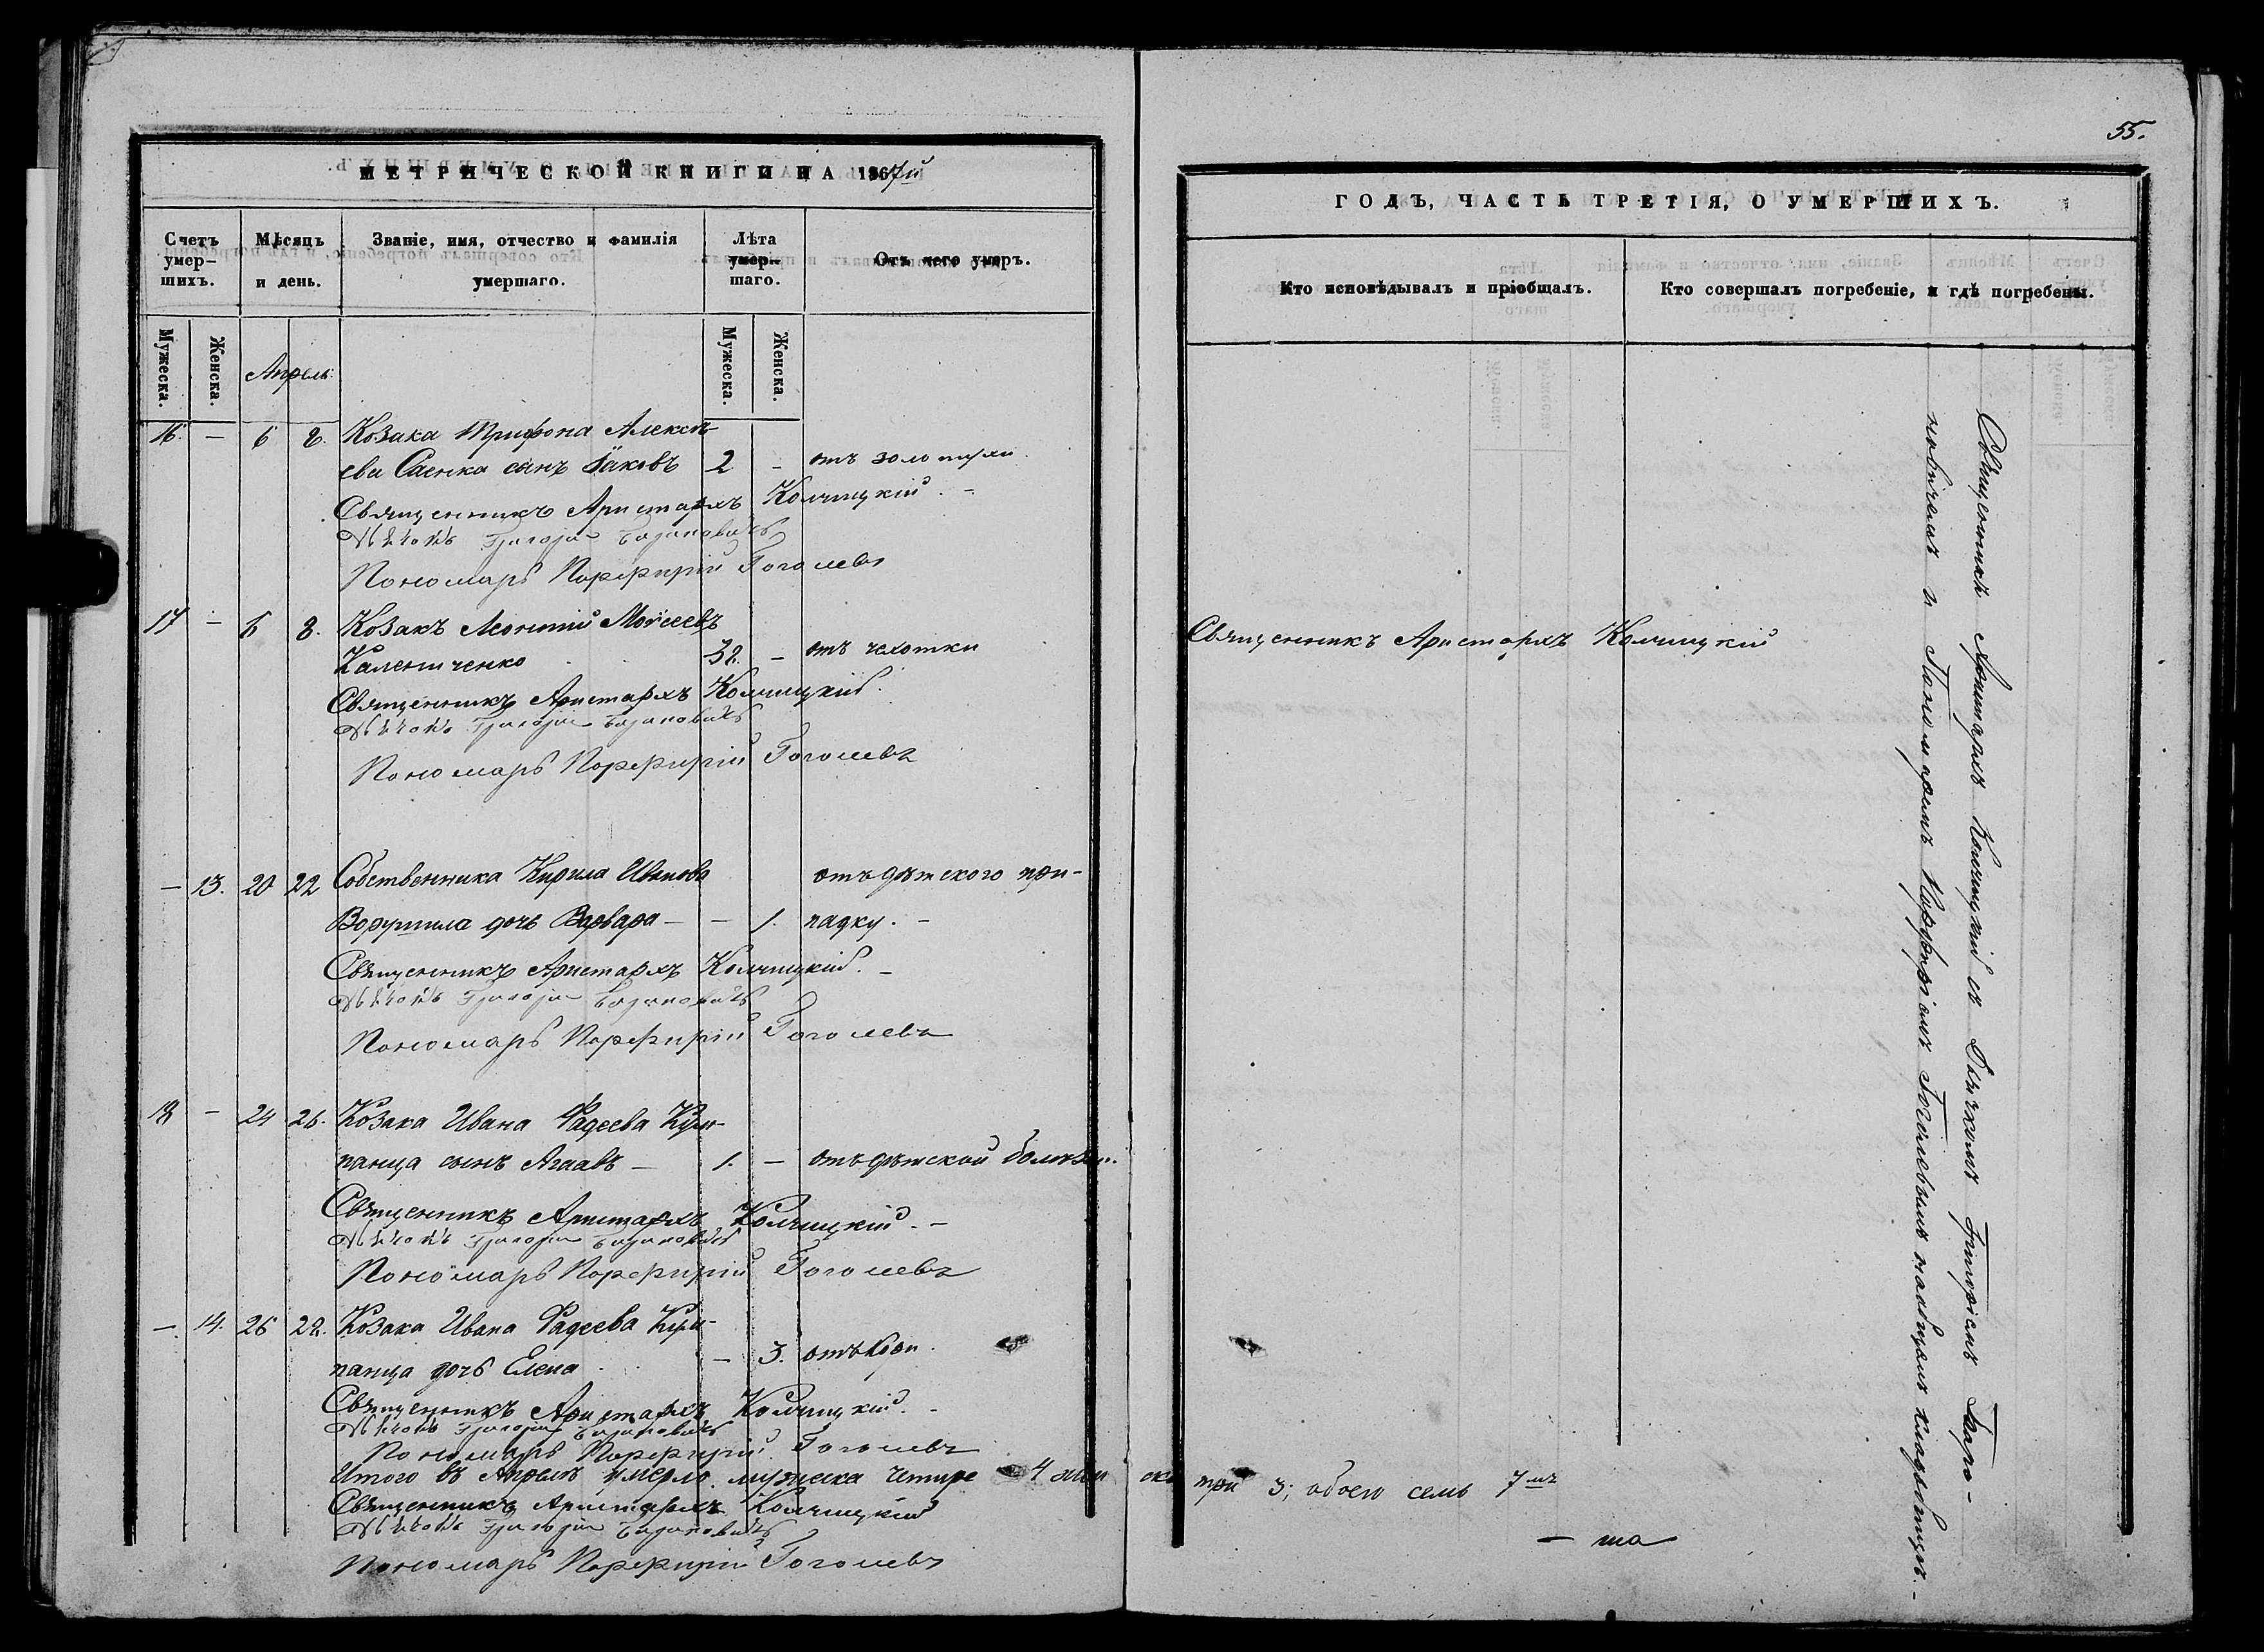 МЕТРИЧЕСКОЙ КНИГИ НА 1867й
Счетъ умер-шихъ.
Мѣсяцъ и день.
Званіе, имя, отчество и фамилія умершаго.
Лѣта умер-шаго.
Отъ чего умеръ.
Мужеска. Женска. Мужеска. Женска.
Апрель
16. — 6 8. Козака Трифона Алексѣ-
ева Саенка сынъ Іаковъ 2 - отъ золотухи.
Священникъ Аристархъ Колчицкій. -
Дьячокъ Григорій
Пономарь Порфирій Гоголевъ
17 — 6 8. Козакъ Леонтій Моѵсеевъ
Калениченко 32. - отъ чехотки
Священникъ Аристархъ Колчицкій.
Дьячокъ Григорій
Пономарь Порфирій Гоголевъ
— 13. 20 22 Собственника Кирила Иванова отъ дѣтского при-
Ворушила дочь Варвара — — 1. падку. -
Священникъ Аристархъ Колчицкій. -
Дьячокъ Григорій
Пономарь Порфирій Гоголевъ
18 — 24 26. Козака Ивана Фадеева Кум-
панца сынъ — 1. — отъ дѣтской болѣзни.
Священникъ Аристархъ Колчицкій. -
Дьячокъ Григорій
Пономарь Порфирій Гоголевъ
—. 14. 26 28. Козака Ивана Фадеева Кум-
панца дочь Елена — 3. отъ кори.
Священникъ Аристархъ Колчицкій. -
Дьячокъ Григорій
Пономарь Порфирій Гоголевъ
Итого въ Апрелѣ умерло мужеска четыре 4 женска три 3; обоего семь 7мъ
Священникъ Аристархъ Колчицкій
Дьячокъ Григорій
Пономарь Порфирій Гоголевъ
55.
ГОДЪ, ЧАСТЬ ТРЕТІЯ, О УМЕРШИХЪ.
Кто исповѣдывалъ и пріобщалъ.
Кто совершалъ погребеніе, и гдѣ погребены.
Священникъ Аристархъ Колчицкій
Священникъ Аристархъ Колчицкій съ Дьячкомъ Григоріемъ
и Пономаремъ Порфиріемъ Гоголевымъ на общемъ кладбищѣ. -
— та